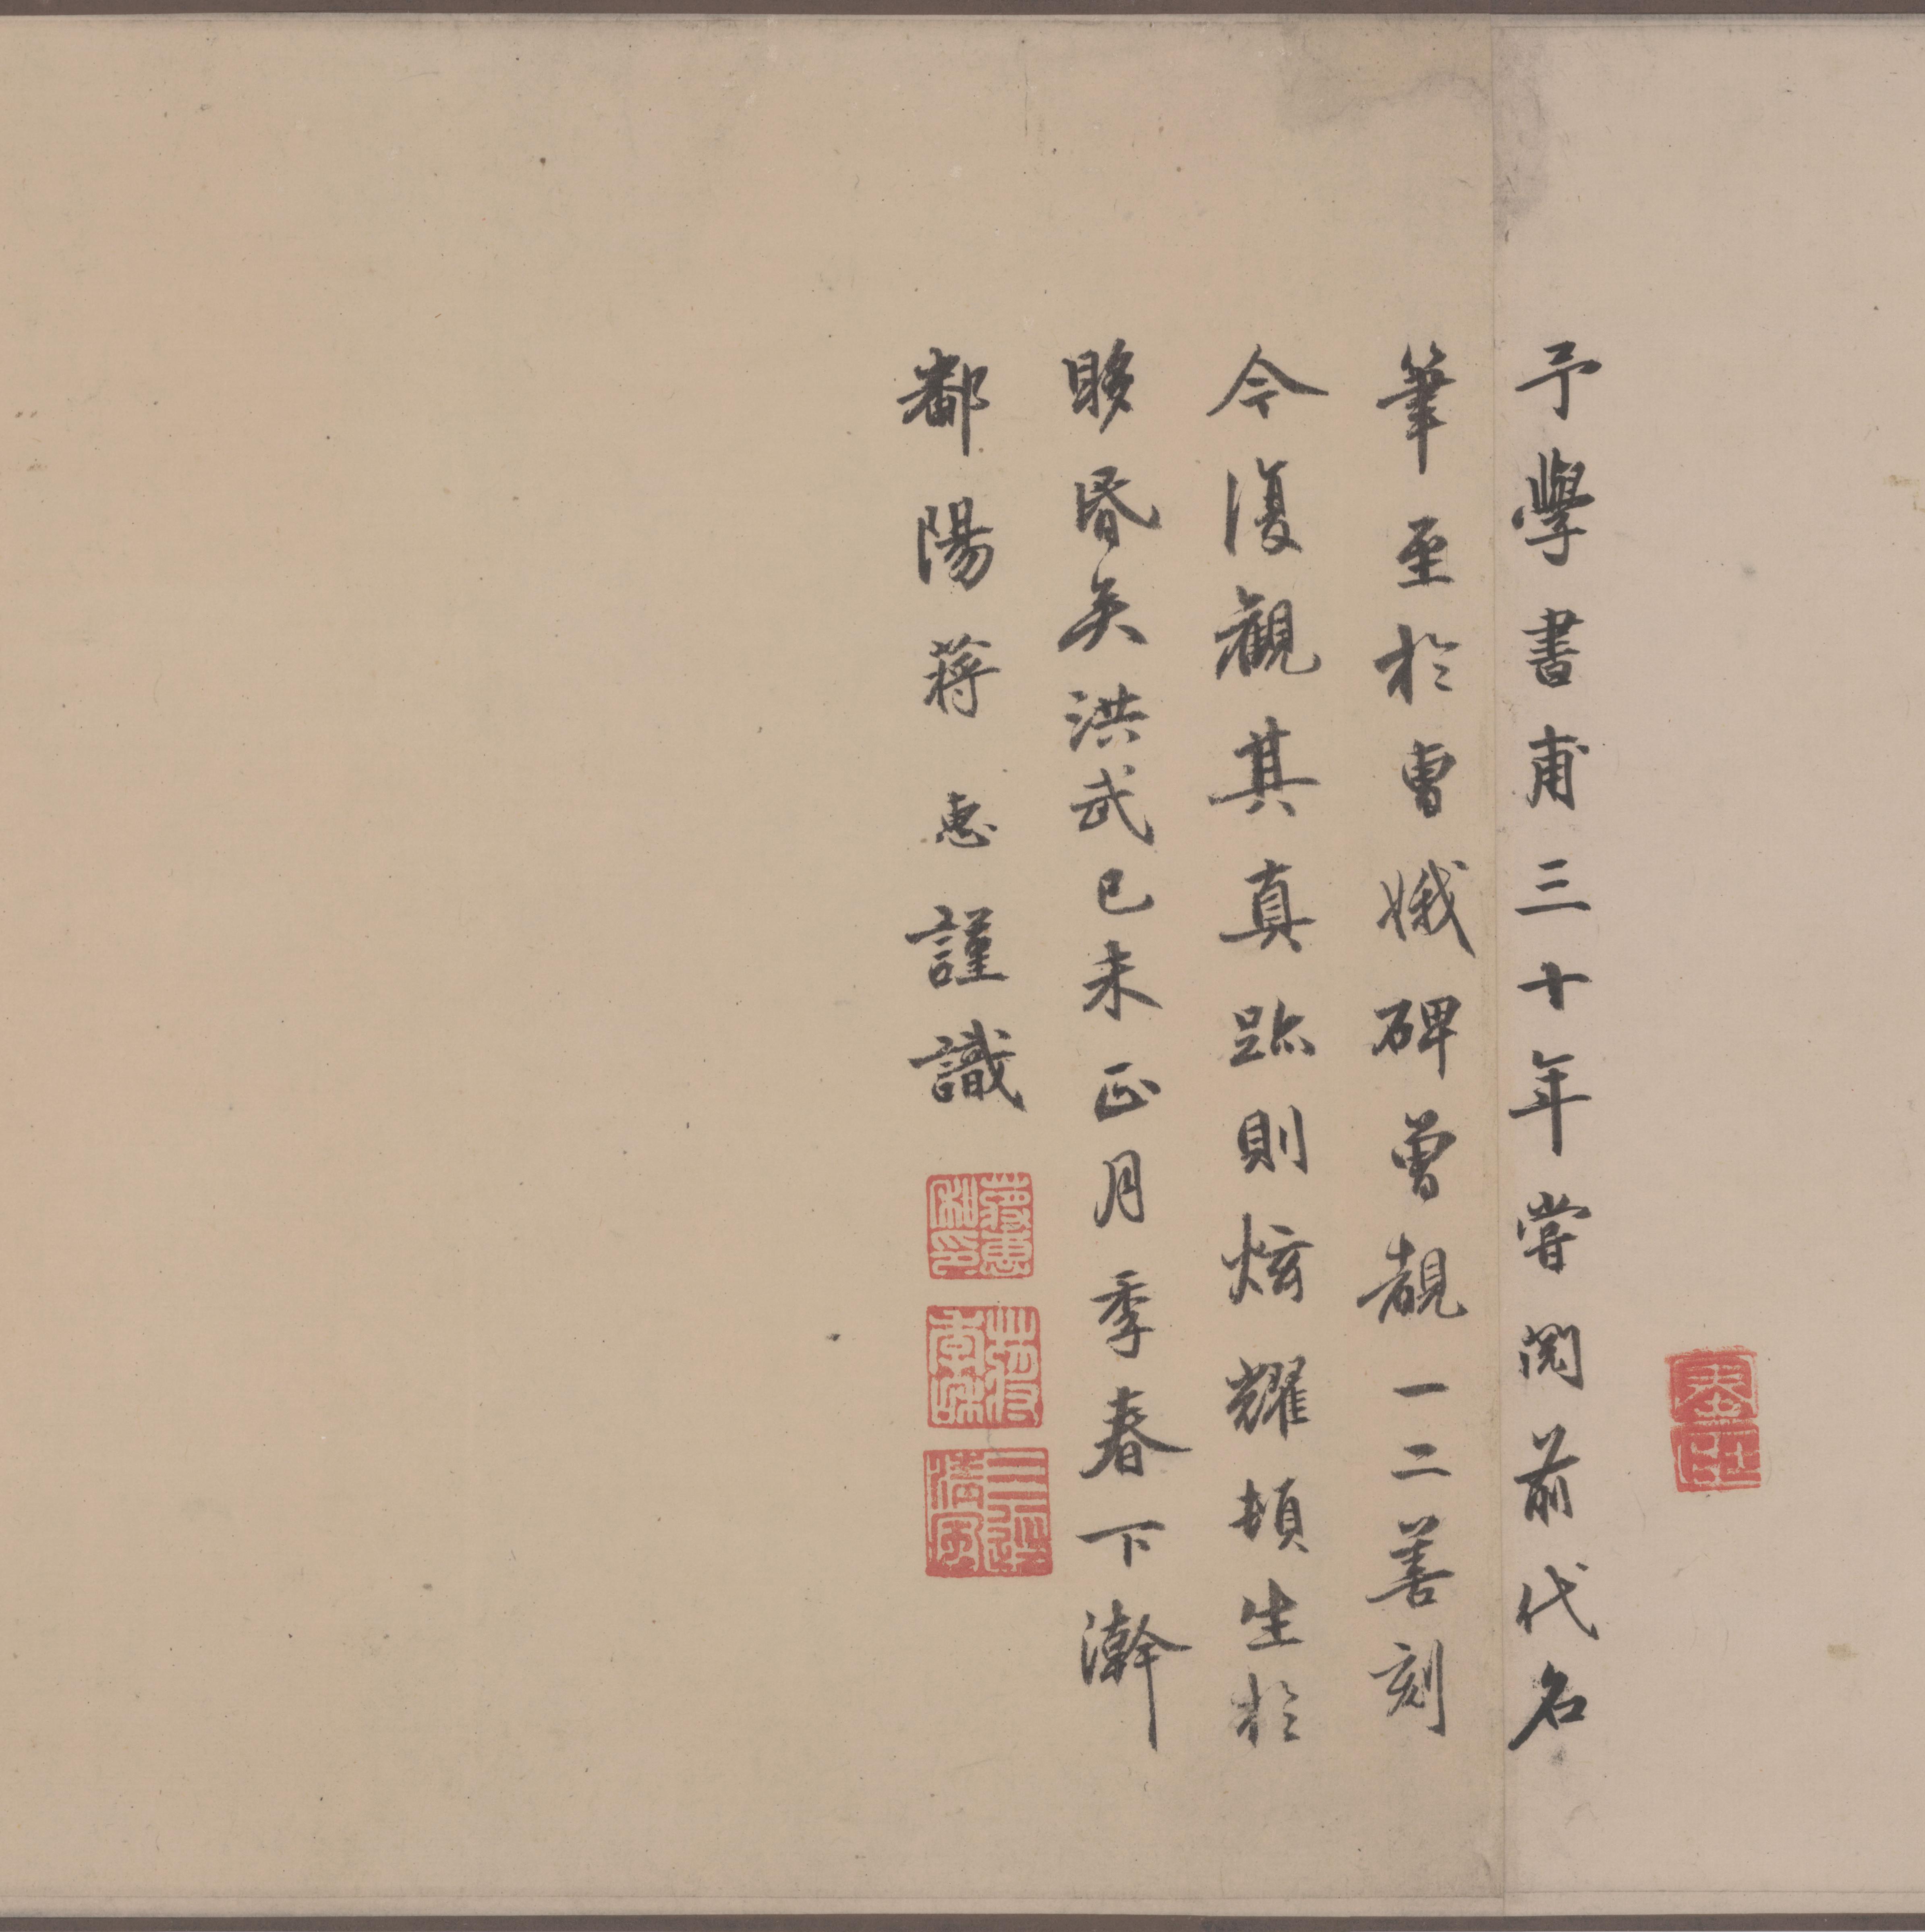 予學書甫三十年嘗閱前代名
筆至於曹娥碑曾覩一二善刻
今復觀其真跡則炫耀頓生於
眵昏矣洪武己未正月季春下澣
鄱陽蔣惠謹識
蔣惠私印
三徑清風